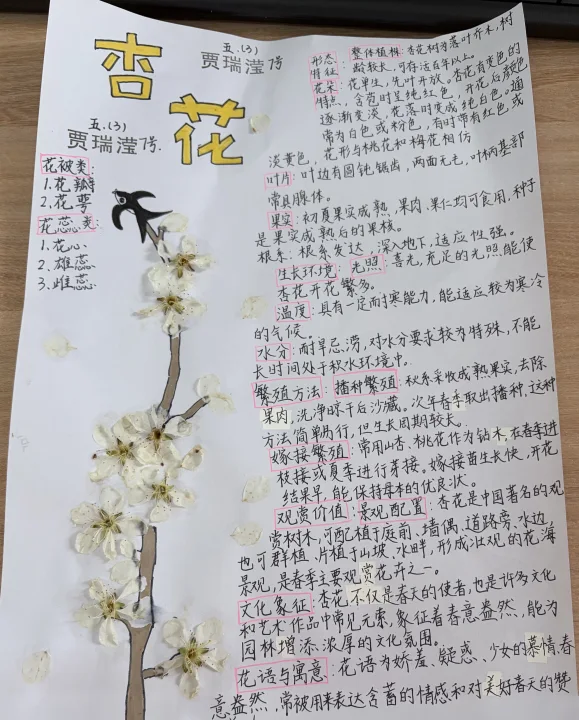 杏花
五.(3)
贾瑞滢7号
五.(3)
贾瑞滢7号.
花被类:
1.花瓣
2.花萼
花蕊类:
1.花心
2.雄蕊
3.雌蕊
形态特征:
整体植株:杏花树为落叶乔木,树
龄较长,可存活百年以上。
花朵特点:
花单生,先叶开放。杏花有变色的
,含苞时呈纯红色,开花后颜色
逐渐变淡,花落时变成纯白色。通
常为白色或粉色,有时带有红色或
淡黄色,花形与桃花和梅花相仿
叶片:叶边有圆钝锯齿,两面无毛,叶柄基部
常具腺体。
果实:初夏果实成熟,果肉、果仁均可食用,种子
是果实成熟后的果核。
根系:根系发达,深入地下,适应性强。
生长环境:光照:喜光,充足的光照能使
杏花开花繁多。
温度:具有一定耐寒能力,能适应较为寒冷
的气候。
水分:耐旱忌涝,对水分要求较为特殊,不能
长时间处于积水环境中。
繁殖方法:播种繁殖:秋系采收成熟果实,去除
果肉,洗净晾干后沙藏。次年春季取出播种,这种
方法简单易行,但生长周期较长。
嫁接繁殖:常用山杏、桃花作为钻木,在春季进
枝接或夏季进行芽接。嫁接苗生长快,开花
结果早,能保持母本的优良状。
观赏价值:景观配置:杏花是中国著名的观
赏树木,可配植于庭前、墙偶、道路旁、水边,
也可群植、片植于山坡、水畔,形成壮观的花海
景观,是春季主要观赏花卉之一。
文化象征:杏花不仅是春天的使者,也是许多文化
和艺术作品中常见元素,象征着春意盎然,能为
园林增添浓厚的文化氛围。
花语与寓意:花语为娇羞、疑惑、少女的慕情,春
意盎然,常被用来表达含蓄的情感和对美好春天的赞